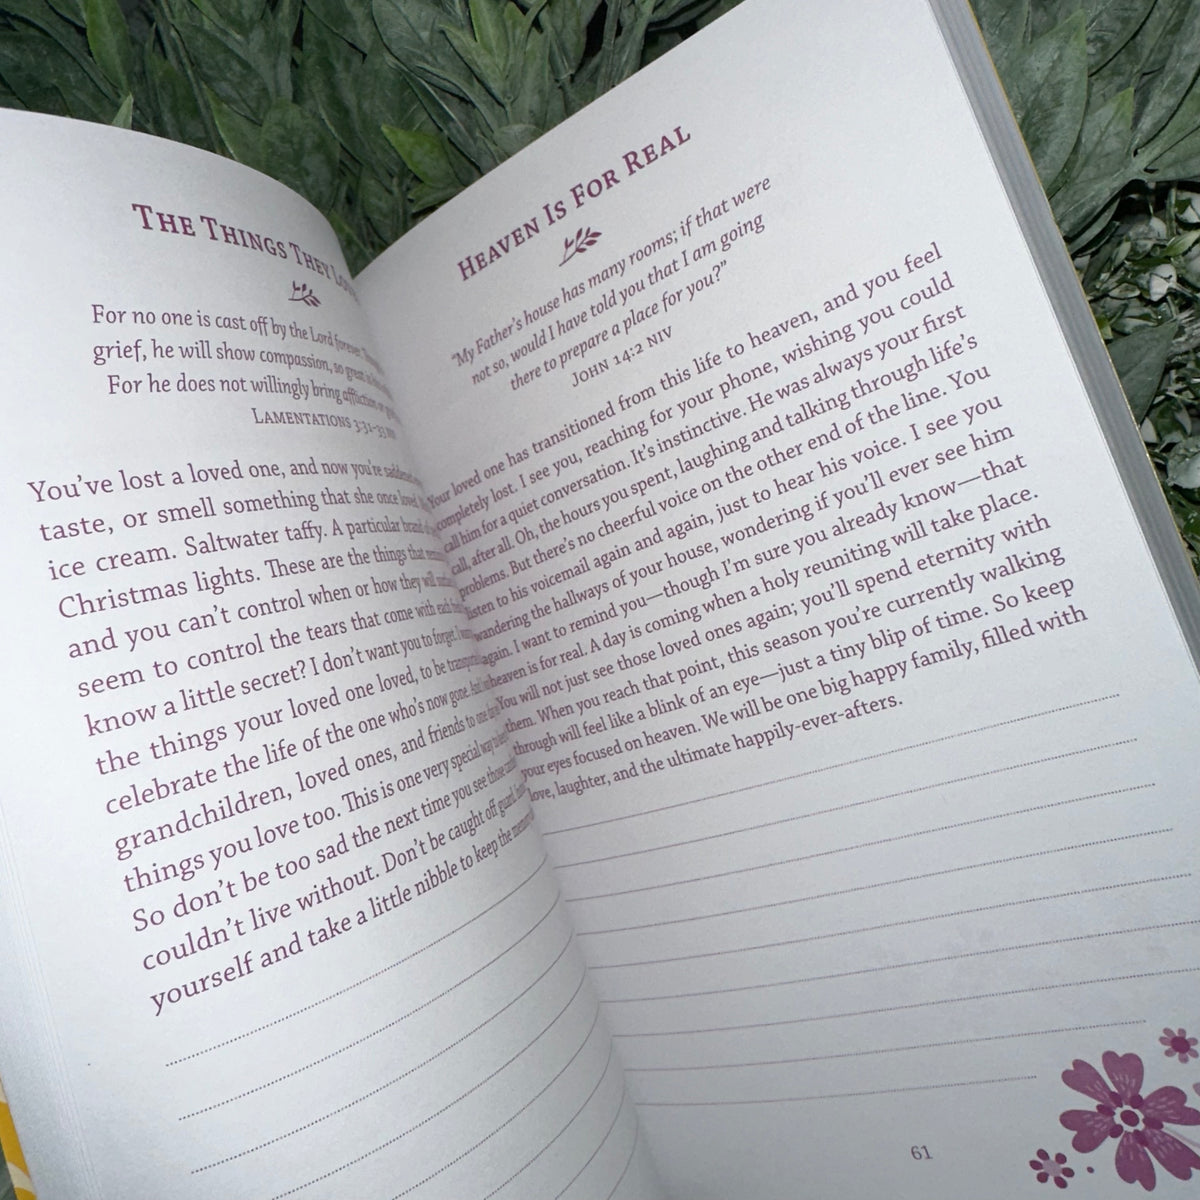 THE THINGS THEY
For no one is cast off by the Lord forever.
grief, he will show compassion, so great
For he does not willingly bring affliction or
LAMENTATIONS 3:31–33
You've lost a loved one, and now you're
taste, or smell something that she once loved.
ice cream. Saltwater taffy. A particular brand
Christmas lights. These are the things that
and you can't control when or how they will
seem to control the tears that come with each
know a little secret? I don't want you to forget.
the things your loved one loved, to be
celebrate the life of the one who's now gone. And
grandchildren, loved ones, and friends to
things you love too. This is one very special way to
So don't be too sad the next time you see those
couldn't live without. Don't be caught off guard.
yourself and take a little nibble to keep the
HEAVEN IS FOR REAL
"My Father's house has many rooms; if that were
not so, would I have told you that I am going
there to prepare a place for you?"
JOHN 14:2 NIV
Your loved one has transitioned from this life to heaven, and you feel
completely lost. I see you, reaching for your phone, wishing you could
call him for a quiet conversation. It's instinctive. He was always your first
call, after all. Oh, the hours you spent, laughing and talking through life's
problems. But there's no cheerful voice on the other end of the line. You
listen to his voicemail again and again, just to hear his voice. I see you
wandering the hallways of your house, wondering if you'll ever see him
again. I want to remind you—though I'm sure you already know—that
heaven is for real. A day is coming when a holy reuniting will take place.
You will not just see those loved ones again; you'll spend eternity with
them. When you reach that point, this season you're currently walking
through will feel like a blink of an eye—just a tiny blip of time. So keep
your eyes focused on heaven. We will be one big happy family, filled with
love, laughter, and the ultimate happily-ever-afters.
61